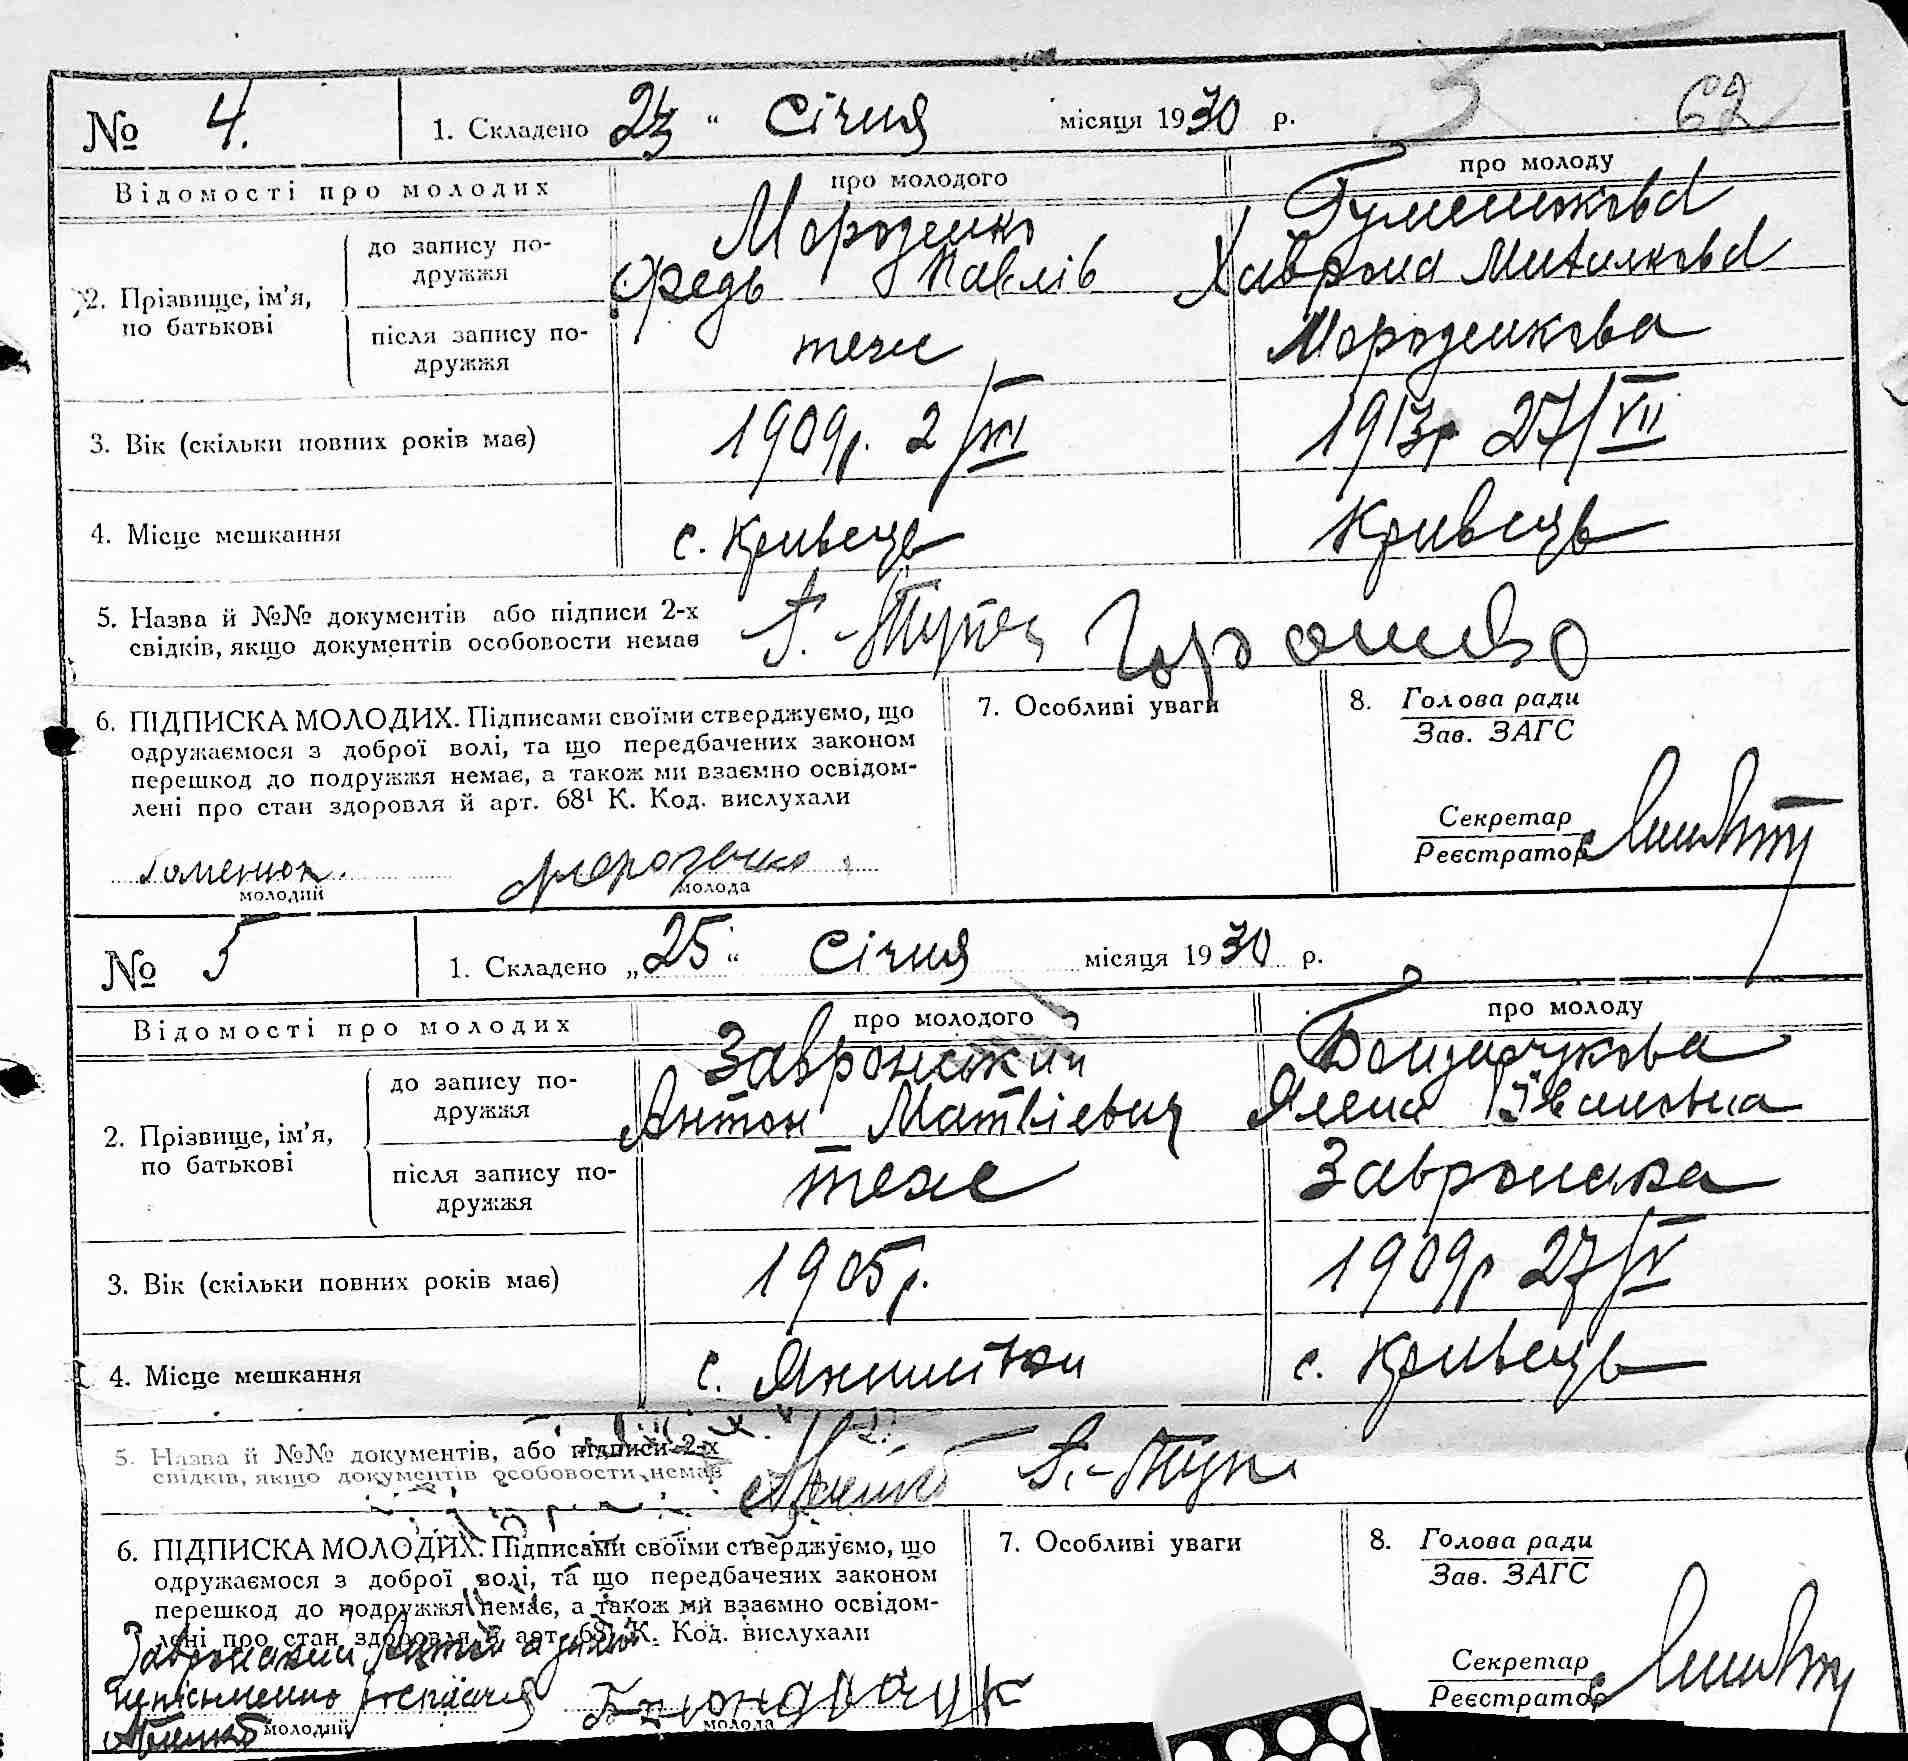 62
№ 4. 1. Складено Січня місяця 1930 р.
Відомості про молодих про молодого про молоду
2. Прізвище, ім'я, по батькові
до запису по-
дружжя
Морозенко
Федь Павлів
Гуменюкова
Хаврона
після запису по-
дружжя
теж
Морозенкова
3. Вік (скільки повних років має) 1909р. 2/XI 1913р 27/VII
4. Місце мешкання с. Кривець Кривець
5. Назва й №№ документів або підписи 2-х
свідків, якщо документів особовости немає
6. ПІДПИСКА МОЛОДИХ. Підписами своїми стверджуємо, що
одружаємося з доброї волі, та що передбачених законом
перешкод до подружжя немає, а також ми взаємно освідом-
лені про стан здоровля й арт. 68¹ К. Код. вислухали
Гоменюк Морозенко
молодий молода
7. Особливі уваги
8. Голова ради
Зав. ЗАГС
Секретар
Реєстратор
№ 5 1. Складено „25“ Січня місяця 1930 р.
Відомості про молодих про молодого про молоду
2. Прізвище, ім'я, по батькові
до запису по-
дружжя
Завронський
Антон Матвієвич
Бондарчукова
Ялена Івановна
після запису по-
дружжя
теж
Завронська
3. Вік (скільки повних років має) 1905р. 1909р 27/V
4. Місце мешкання с. с. Кривець
5. Назва й №№ документів, або підписи 2-х
свідків, якщо документів особовости немає
6. ПІДПИСКА МОЛОДИХ. Підписами своїми стверджуємо, що
одружаємося з доброї волі, та що передбачених законом
перешкод до подружжя немає, а також ми взаємно освідом-
лені про стан здоровля й арт. 68¹ К. Код. вислухали
Завронський Антон а за його
молодий молода
7. Особливі уваги
8. Голова ради
Зав. ЗАГС
Секретар
Реєстратор